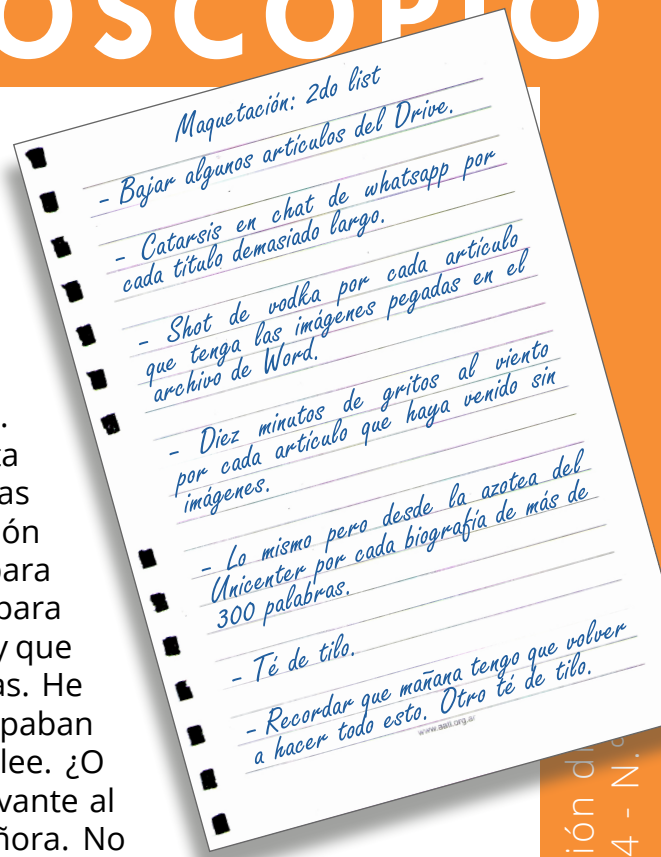 OSCOPIO
Maquetación: 2do list
- Bajar algunos artículos del Drive.
- Catarsis en chat de whatsapp por
cada título demasiado largo.
- Shot de vodka por cada artículo
que tenga las imágenes pegadas en el
archivo de Word.
- Diez minutos de gritos al viento
por cada artículo que haya venido sin
imágenes.
- Lo mismo pero desde la azotea del
Unicenter por cada biografía de más de
300 palabras.
- Té de tilo.
- Recordar que mañana tengo que volver
a hacer todo esto. Otro té de tilo.
.
ta
as
ón
para
para
y que
as. He
paban
lee. ¿O
vante al
ñora. No
ión di
4 - N.º